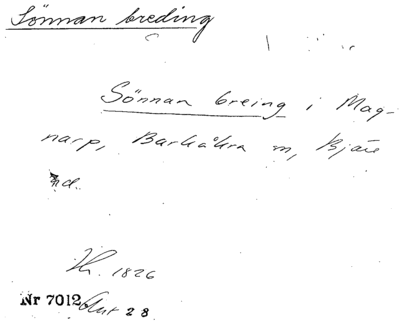 Sönnan breding
Sönnan breing i Mag-
narp, Barkåkra sn, Bjäre
hd.
Hr. 1826
Nr 7012 28